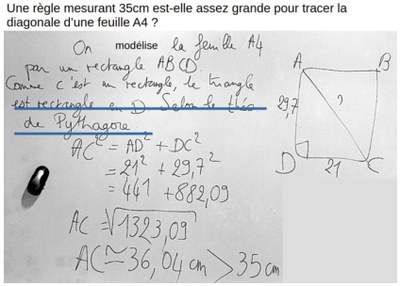 Une règle mesurant 35cm est-elle assez grande pour tracer la
diagonale d'une feuille A4 ?
On modélise la feuille A4
par un rectangle ABCD
Comme c'est un rectangle, le triangle
est rectangle en D Selon le théo
de Pythagore
AC² = AD² + DC²
= 21² + 29,7²
= 441 + 882,09
AC = √1323,09
AC ≃ 36,04 cm > 35 cm
A B
29,7 ?
D 21 C